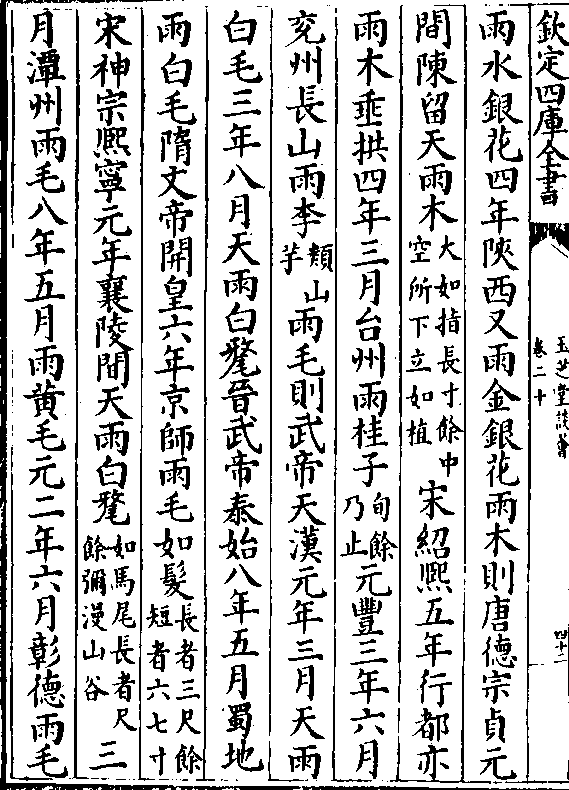 欽定四庫全書
玉芝堂談薈
卷二十
四十二
雨水銀花四年陜西又雨金銀花雨木則唐德宗貞元
間陳留天雨木大如指長寸餘中空所下立如植宋紹熙五年行都亦
雨木垂拱四年三月台州雨桂子旬餘乃止元豐三年六月
兗州長山雨李類山芋雨毛則武帝天漢元年三月天雨
白毛三年八月天雨白氂晉武帝泰始八年五月蜀地
雨白毛隋文帝開皇六年京師雨毛如髮長者三尺餘短者六七寸
宋神宗熈寧元年襄陵間天雨白氂如馬尾長者尺餘彌漫山谷三
月潭州雨毛八年五月雨黄毛元二年六月彰德雨毛